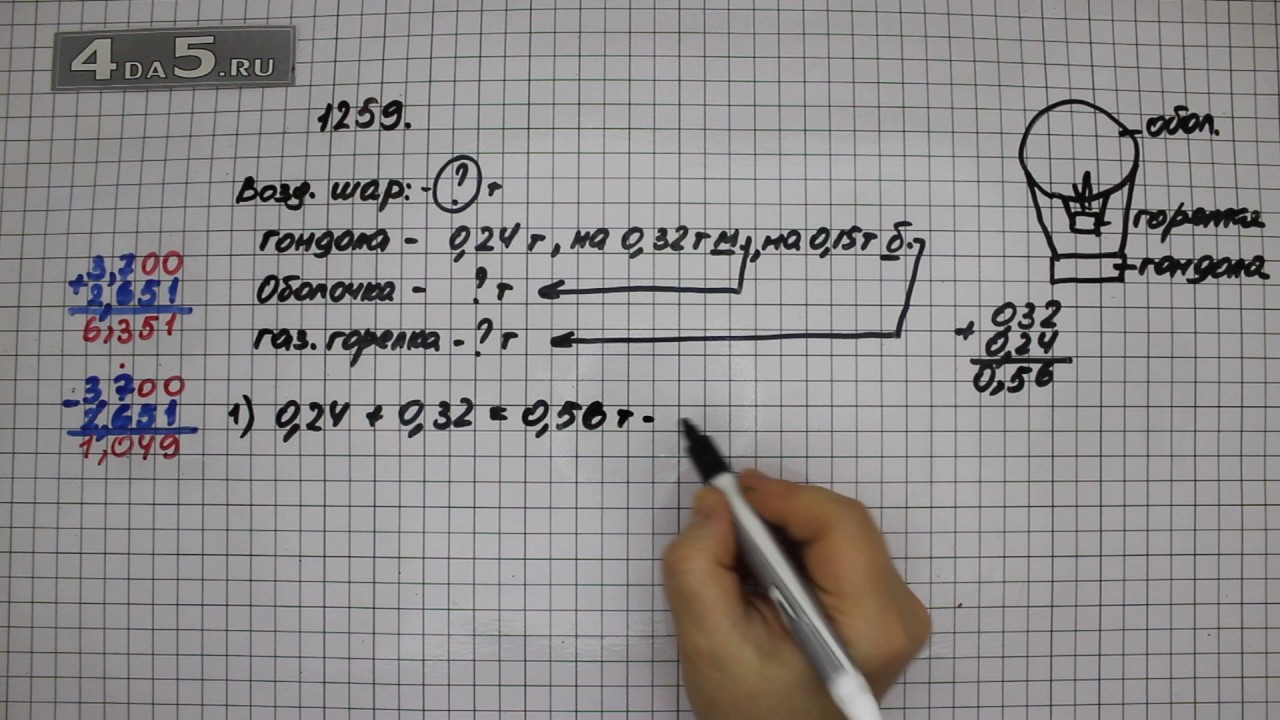 4DA5.RU
1259.
Возд. шар: - ? т
гондола - 0,24 т, на 0,32 т м., на 0,15 т б.
Оболочка - ? т
газ. горелка - ? т
1) 0,24 + 0,32 = 0,56 т -
3,700
+ 2,651
6,351
- 3,700
2,651
1,049
обол.
горелка
гондола
032
+ 0,24
0,56